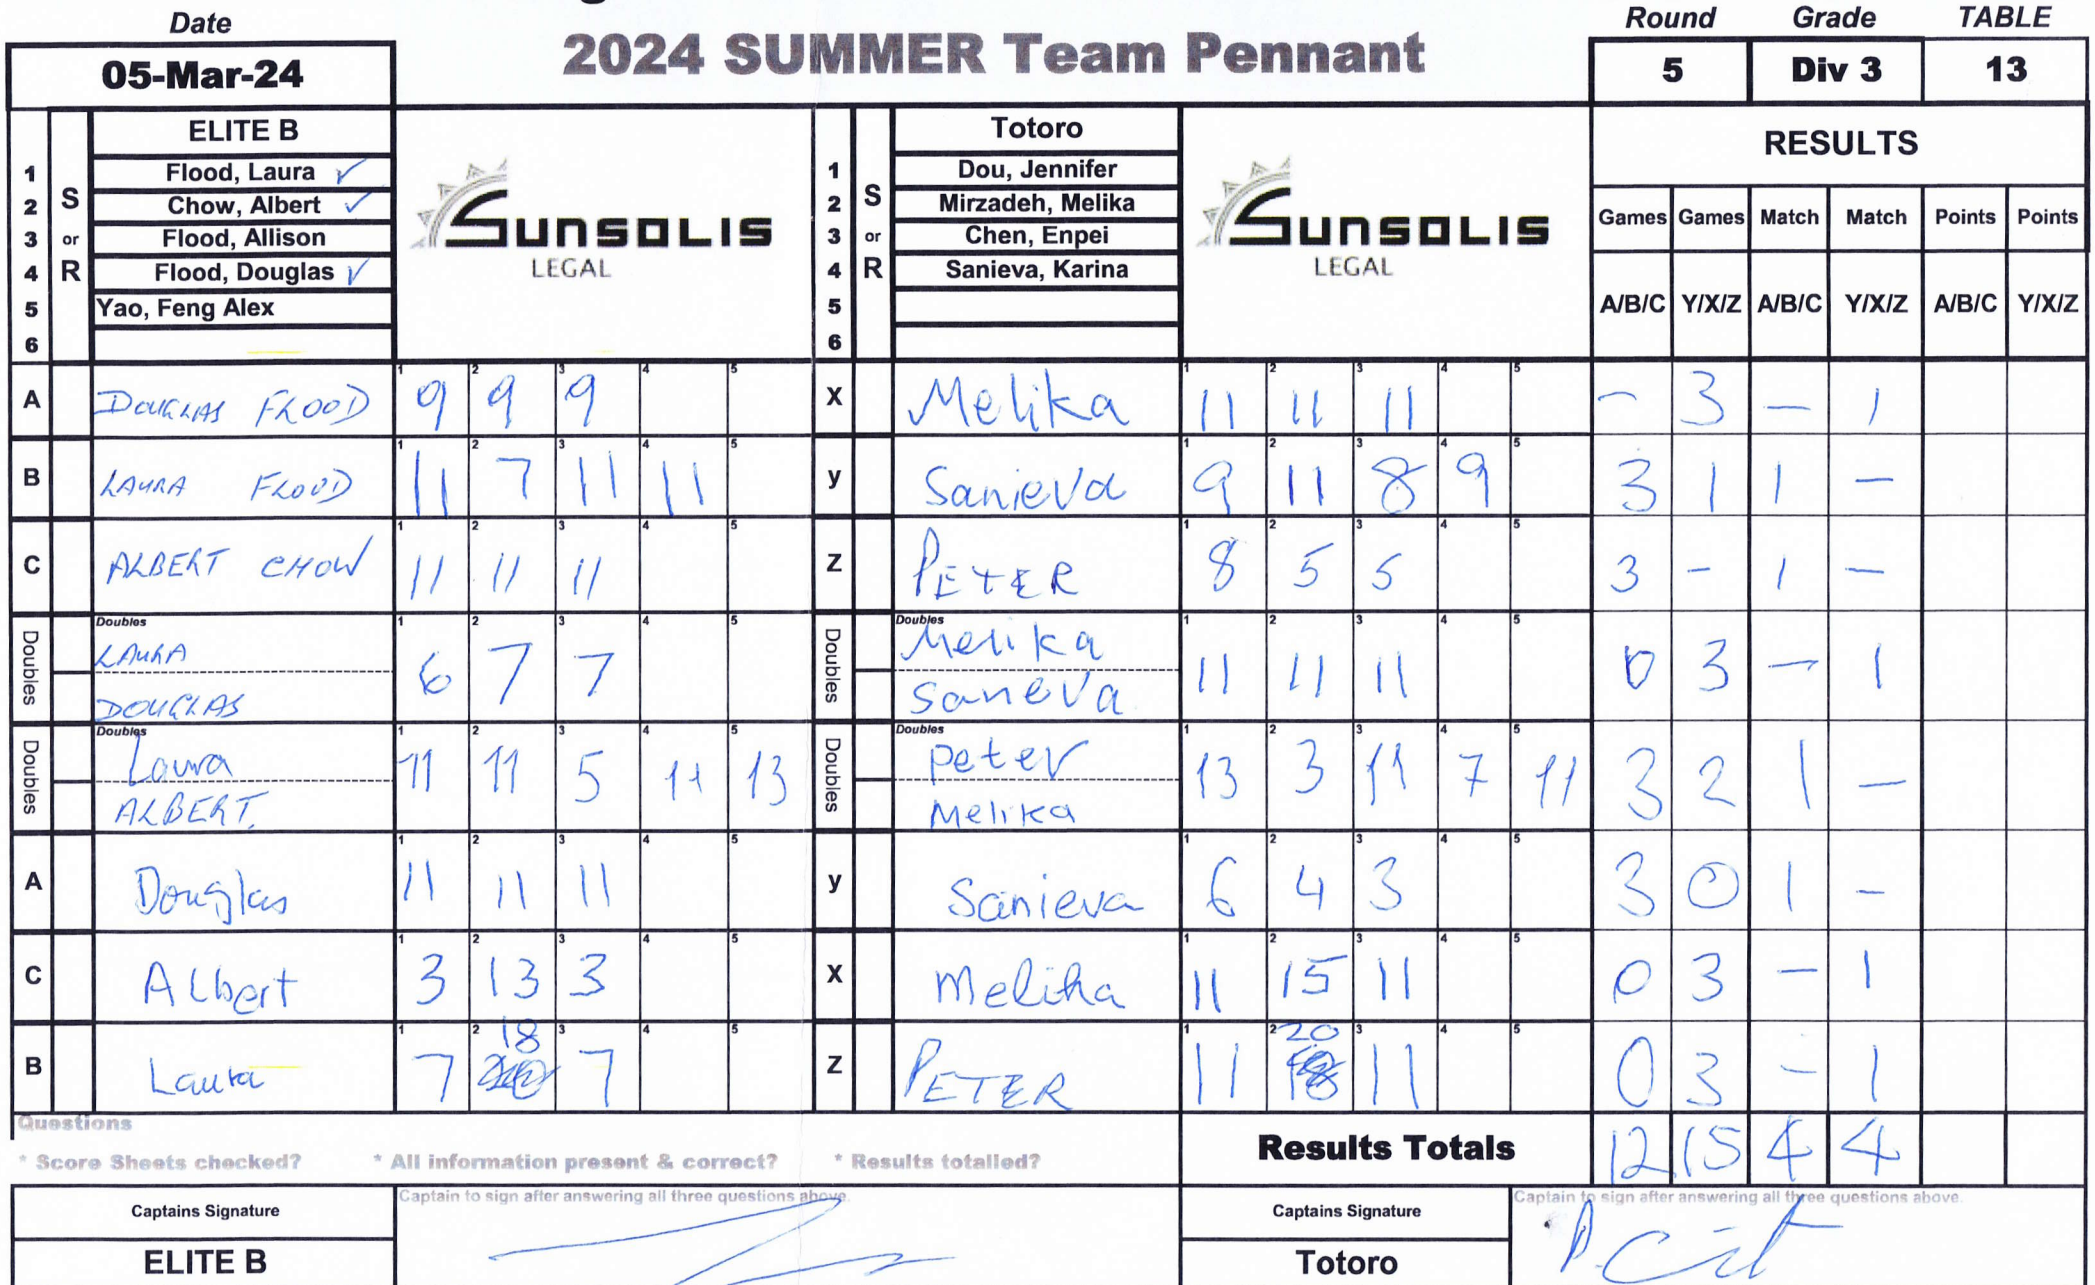 Date
05-Mar-24
2024 SUMMER Team Pennant
Round Grade TABLE
5 Div 3 13
S or R
ELITE B
1 Flood, Laura ✓
2 Chow, Albert ✓
3 Flood, Allison
4 Flood, Douglas ✓
5 Yao, Feng Alex
6
SUNSOLIS
LEGAL
S or R
Totoro
1 Dou, Jennifer
2 Mirzadeh, Melika
3 Chen, Enpei
4 Sanieva, Karina
5
6
SUNSOLIS
LEGAL
RESULTS
Games Games Match Match Points Points
A/B/C Y/X/Z A/B/C Y/X/Z A/B/C Y/X/Z
A DOUGLAS FLOOD 9 9 9 X Melika 11 11 11 - 3 - 1
B LAURA FLOOD 11 7 11 11 y Sanieva 9 11 8 9 3 1 1 -
C ALBERT CHOW 11 11 11 Z PETER 8 5 5 3 - 1 -
Doubles LAURA DOUGLAS 6 7 7 Doubles Melika Saneva 11 11 11 0 3 - 1
Doubles Laura ALBERT. 11 11 5 11 13 Doubles peter Melika 13 3 11 7 11 3 2 1 -
A Douglas 11 11 11 y Sanieva 6 4 3 3 0 1 -
C Albert 3 13 3 X Melika 11 15 11 0 3 - 1
B Laura 7 18 7 Z PETER 11 20 11 0 3 - 1
Questions
* Score Sheets checked? * All information present & correct? * Results totalled?
Results Totals 12 15 4 4
Captains Signature
ELITE B
Captain to sign after answering all three questions above.
Captains Signature
Totoro
Captain to sign after answering all three questions above.